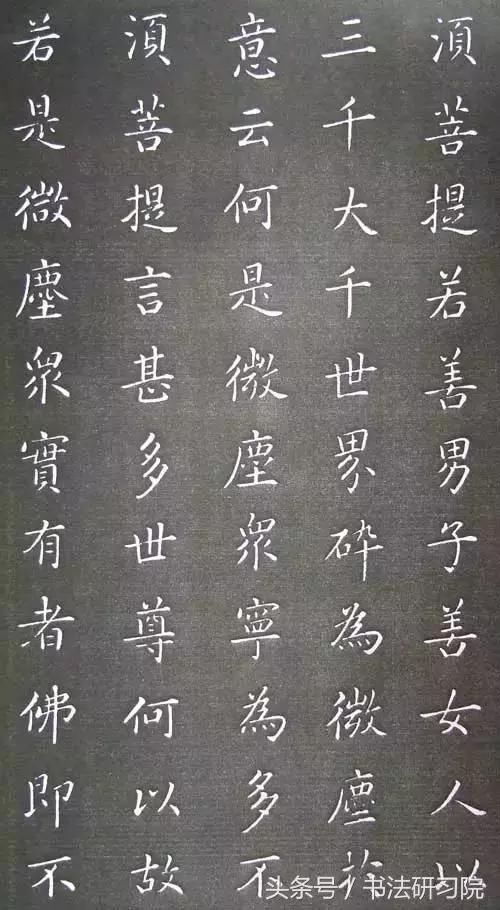 須菩提若善男子善女人以
三千大千世界碎為微塵於
意云何是微塵眾寧為多不
須菩提言甚多世尊何以故
若是微塵眾實有者佛即不
头条号 / 书法研习院